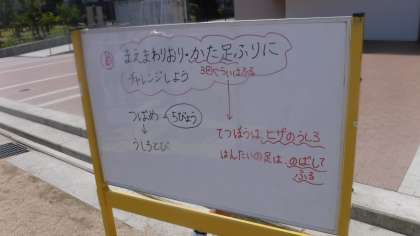 め まえまわりおり・かた足ふりに
チャレンジしよう 3回ぐらいはふる
つばめ 5びょう
うしろとび
てつぼうは、ヒザのうしろ
はんたいの足は、のばして
ふる